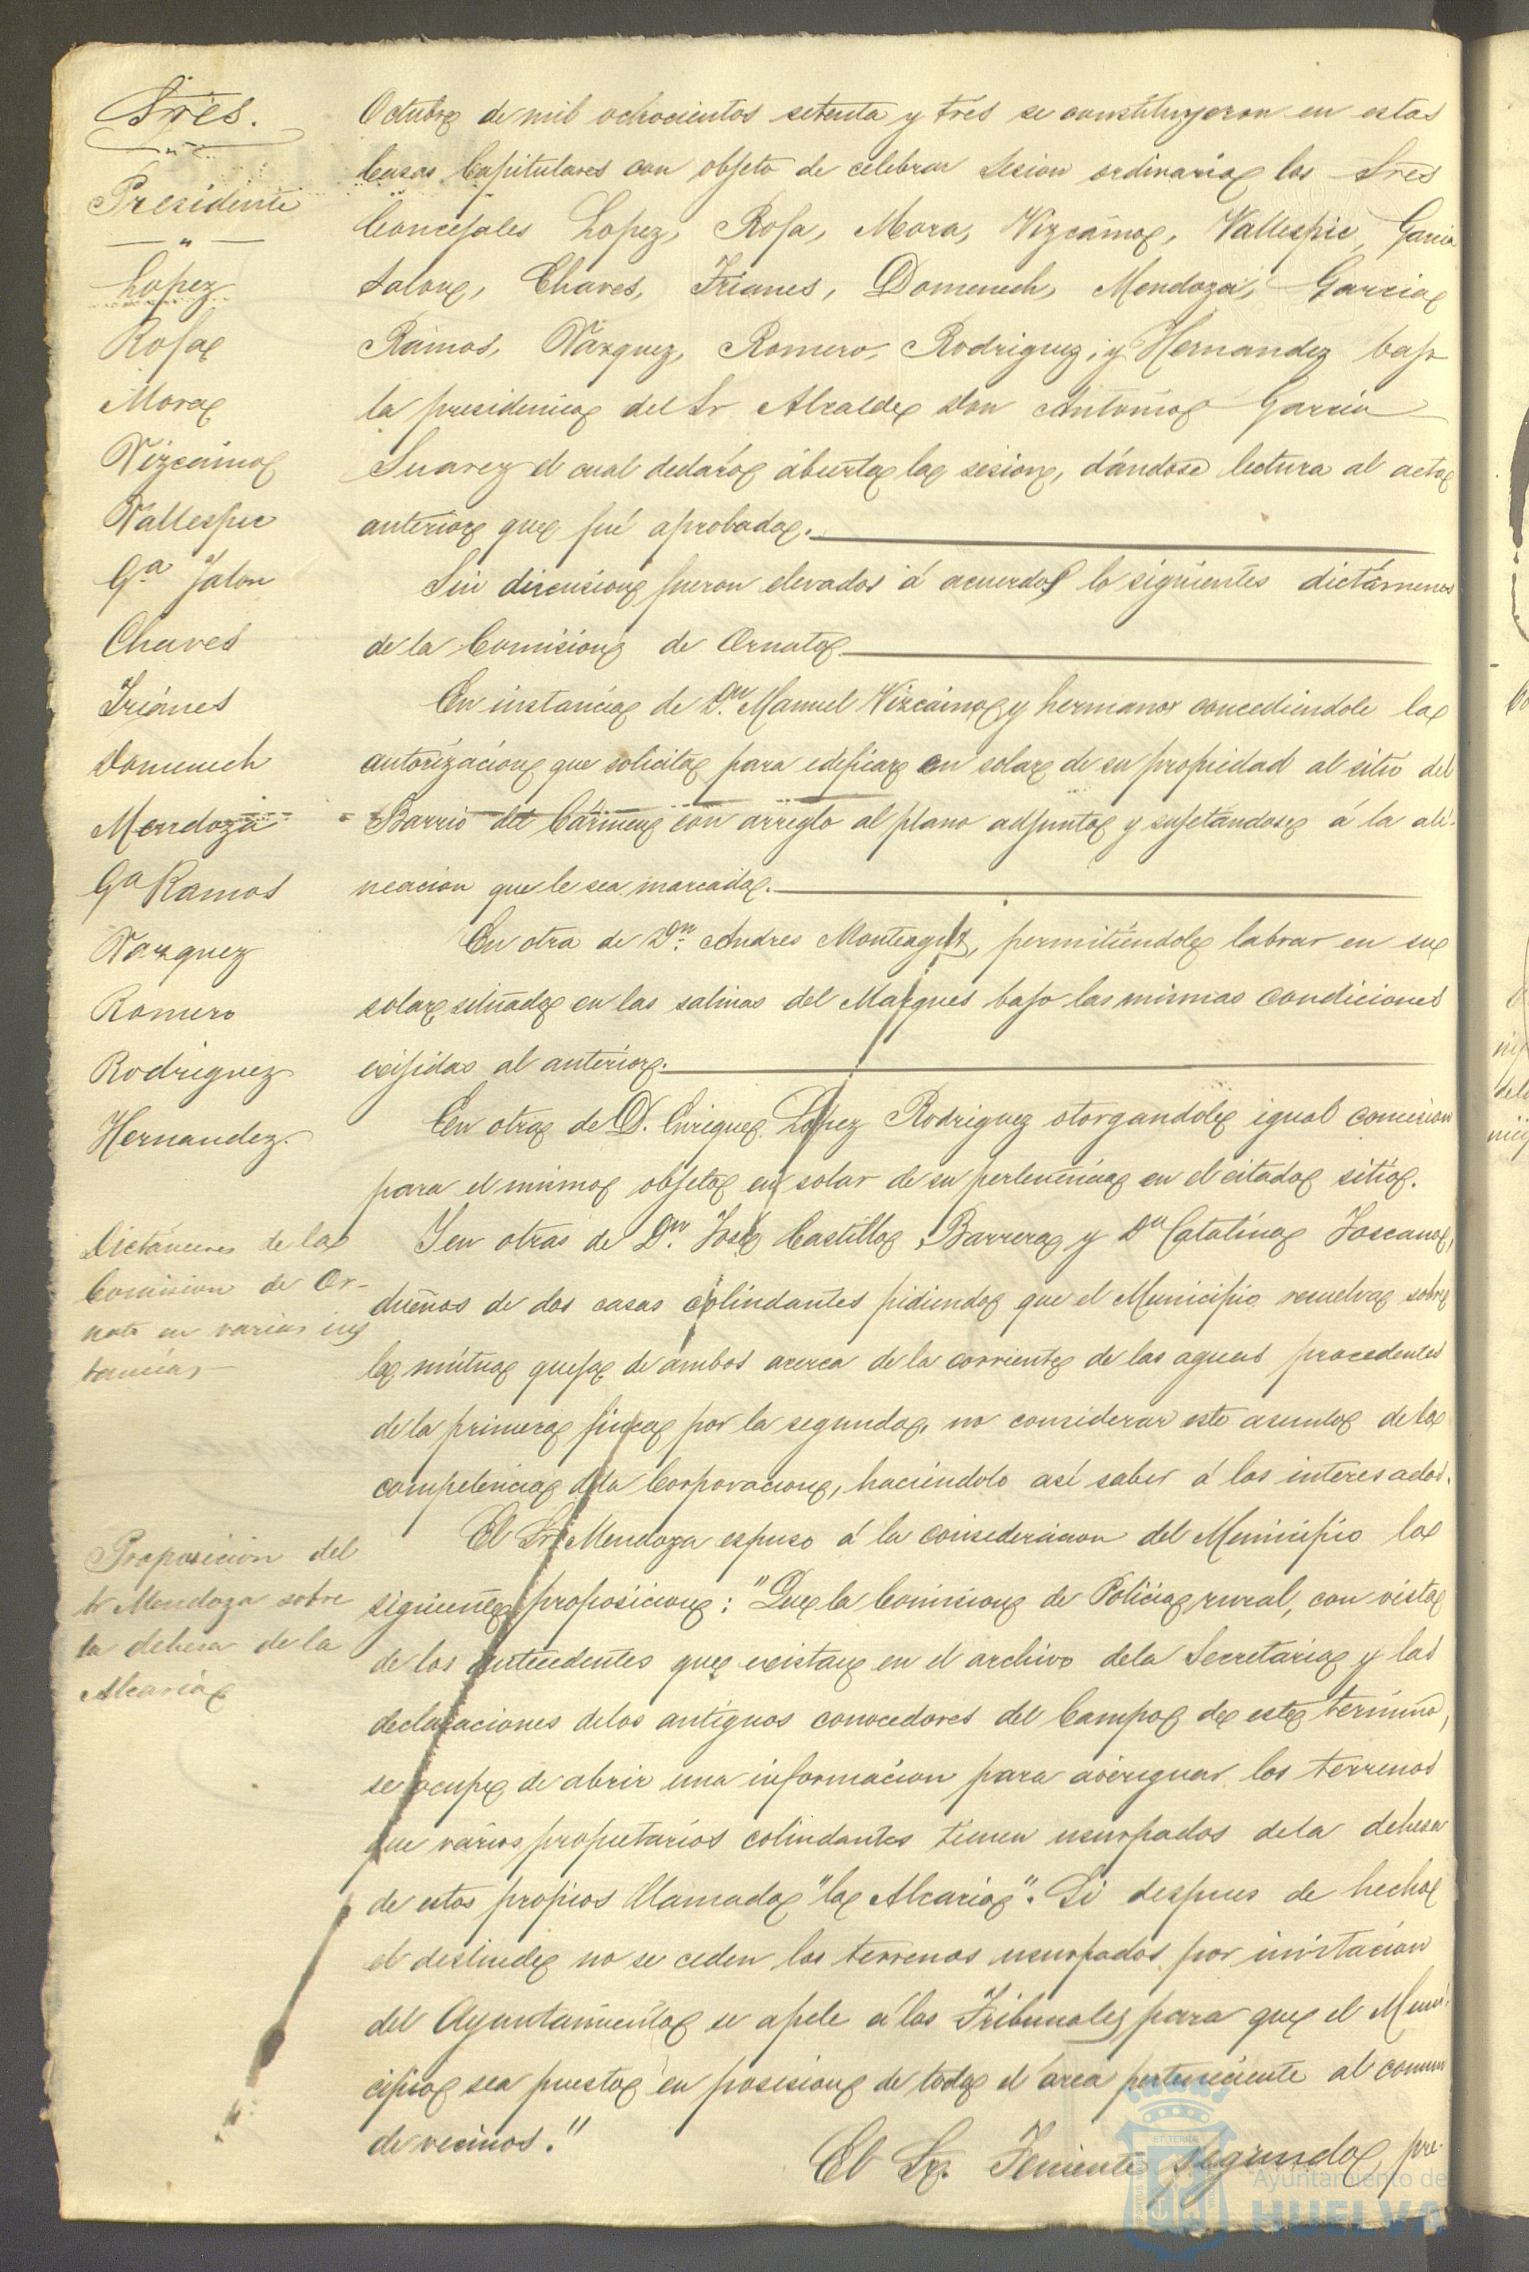 Sres.
Presidente
Lopez
Rofa
Mora
Vizcaino
Vallespic
Gª Jalon
Chaves
Trianes
Domenech
Mendoza
Gª Ramos
Vazquez
Romero
Rodriguez
Hernandez.
Octubre de mil ochocientos setenta y tres se constituyeron en estas
Casas Capitulares con objeto de celebrar sesion ordinaria los Sres
Concejales Lopez, Rofa, Mora, Vizcaino, Vallespic, Garcia
Jalon, Chaves, Trianes, Domenech, Mendoza, Garcia
Ramos, Vazquez, Romero, Rodriguez, y Hernandez bajo
la presidencia del Sr Alcalde Don Antonio Garcia
Suarez el cual declaró abierta la sesion, dándose lectura al acta
anterior que fué aprobada.
Sin discusion fueron elevados á acuerdos lo siguientes dictámenes
de la Comision de Ornato.
En instancia de Dn. Manuel Vizcaino y hermanos concediendole la
autorizacion que solicita para edificar en solar de su propiedad al sitio del
Barrio del Cármen con arreglo al plano adjunto y sujetándose á la ali-
neacion que le sea marcada.
En otra de Dn. Andres Monteagut, permitiéndole labrar en su
solar situado en las salinas del Marques bajo las mismas condiciones
exijidas al anterior.
En otra de D. Enrique Lopez Rodriguez otorgandole igual concesion
para el mismo objeto en solar de su pertenencia en el citado sitio.
Dictámenes de la
Comision de Or-
nato en varias ins
tancias
Y en otras de Dn. José Castillo Barrera y Dª Catalina Toscano,
dueños de dos casas colindantes pidiendo que el Municipio resuelva sobre
la mútua queja de ambos acerca de la corriente de las aguas procedentes
de la primera finca por la segunda, no considerar este asunto de la
competencia de la Corporacion, haciéndolo así saber á los interesados.
Proposicion del
Sr Mendoza sobre
la dehesa de la
Alcaria
El Sr Mendoza espuso á la consideracion del Municipio la
siguiente proposicion: "Que la Comision de Policia rural, con vista
de los antecedentes que existan en el archivo de la Secretaria y las
declaraciones de los antiguos conocedores del Campo de este término,
se ocupe de abrir una informacion para averiguar los terrenos
que varios propietarios colindantes tienen usurpados de la dehesa
de estos propios llamada "la Alcaria". Si despues de hecho
el deslinde no se ceden los terrenos usurpados por invitacion
del Ayuntamiento se apele á los Tribunales para que el Muni-
cipio sea puesto en posesion de todo el área perteneciente al comun
de vecinos."
El Sr. Teniente segundo pre-
Ayuntamiento de
HUELVA